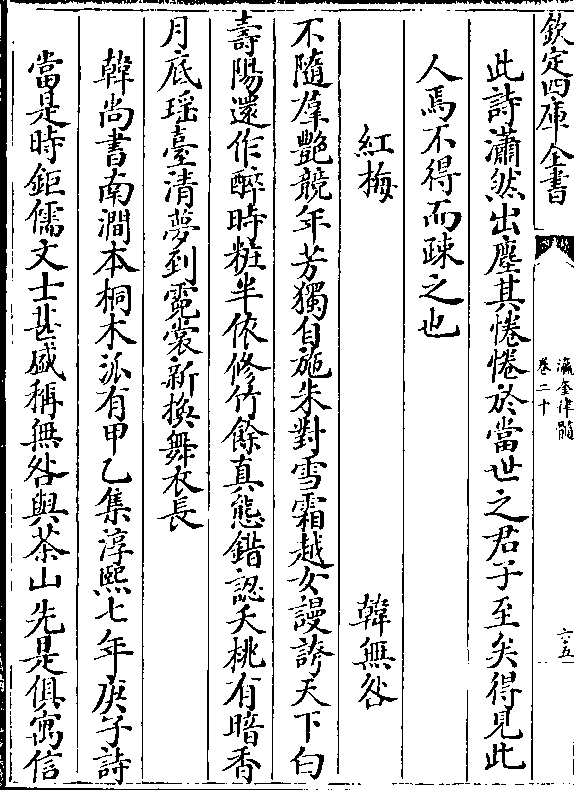 欽定四庫全書
瀛奎律髓
卷二十
六五
此詩瀟然出塵其惓惓於當世之君子至矣得見此
人焉不得而疎之也
紅梅
韓無咎
不隨羣艷競年芳獨自施朱對雪霜越女謾誇天下白
壽陽還作醉時粧半依修竹餘真態錯認夭桃有暗香
月底瑶臺清夢到霓裳新換舞衣長
韓尚書南澗本桐木派有甲乙集淳熙七年庚子詩
當是時鉅儒文士甚盛稱無咎與茶山先是俱寓信